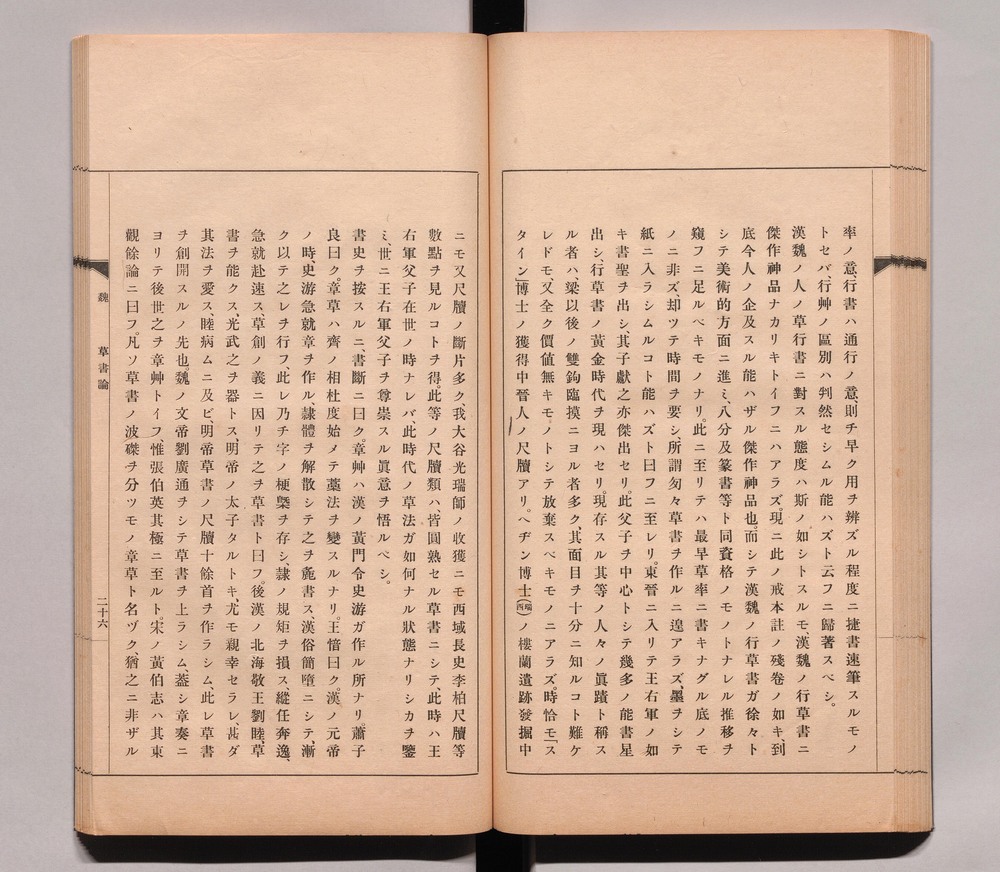 率ノ意、行書ハ通行ノ意、則チ早ク用ヲ辨ズル程度ニ捷書速筆スルモノ
トセバ、行艸ノ區別ハ判然セシムル能ハズト云フニ歸著スベシ。
漢魏ノ人ノ草行書ニ對スル態度ハ斯ノ如シトスルモ、漢魏ノ行草書ニ
傑作神品ナカリキトイフニハアラズ。現ニ此ノ戒本註ノ殘卷ノ如キ、到
底今人ノ企及スル能ハザル傑作神品也。而シテ漢魏ノ行草書ガ徐々ト
シテ美術的方面ニ進ミ、八分及篆書等ト同資格ノモノトナレル推移ヲ
窺フニ足ルベキモノナリ。此ニ至リテハ最早草率ニ書キナグル底ノモ
ノニ非ズ、却ツテ時間ヲ要シ、所謂匆々草書ヲ作ルニ遑アラズ、墨ヲシテ
紙ニ入ラシムルコト能ハズト曰フニ至レリ。東晉ニ入リテ王右軍ノ如
キ書聖ヲ出シ、其子獻之亦傑出セリ。此父子ヲ中心トシテ幾多ノ能書星
出シ、行草書ノ黃金時代ヲ現ハセリ。現存スル其等ノ人々ノ眞蹟ト稱ス
ル者ハ、梁以後ノ雙鉤臨摸ニヨル者多ク、其面目ヲ十分ニ知ルコト難ケ
レドモ、又全ク價値無キモノトシテ放棄スベキモノニアラズ。時恰モ「ス
タイン」博士ノ獲得中晉人ノ尺牘アリ。ヘヂン博士(瑞西)ノ樓蘭遺跡發掘中
ニモ又尺牘ノ斷片多ク、我大谷光瑞師ノ收獲ニモ西域長史李柏尺牘等
數點ヲ見ルコトヲ得。此等ノ尺牘類ハ、皆圓熟セル草書ニシテ、此時ハ王
右軍父子在世ノ時ナレバ、此時代ノ草法ガ如何ナル狀態ナリシカヲ鑒
ミ、世ニ王右軍父子ヲ尊崇スル眞意ヲ悟ルベシ。
書史ヲ按スルニ書斷ニ曰ク。章艸ハ漢ノ黃門令史游ガ作ル所ナリ。蕭子
良曰ク。章草ハ齊ノ相杜度始メテ藁法ヲ變スルナリ。王愔曰ク。漢ノ元帝
ノ時、史游急就章ヲ作ル、隸體ヲ解散シテ之ヲ麁書ス、漢俗簡墮ニシテ、漸
ク以テ之レヲ行フ、此レ乃チ字ノ梗槩ヲ存シ、隸ノ規矩ヲ損ス、縱任奔逸、
急就赴速ス、草創ノ義ニ因リテ之ヲ草書ト曰フ。後漢ノ北海敬王劉睦草
書ヲ能クス、光武之ヲ器トス、明帝ノ太子タルトキ、尤モ親幸セラレ、甚ダ
其法ヲ愛ス、睦病ムニ及ビ、明帝草書ノ尺牘十餘首ヲ作ラシム、此レ草書
ヲ創開スルノ先也。魏ノ文帝劉廣通ヲシテ草書ヲ上ラシム、蓋シ章奏ニ
ヨリテ後世之ヲ章艸トイフ、惟張伯英其極ニ至ルト。宋ノ黃伯志ハ其東
觀餘論ニ曰フ。凡ソ草書ノ波磔ヲ分ツモノ章草ト名ヅク、猶之ニ非ザル
魏 草書論 二十六